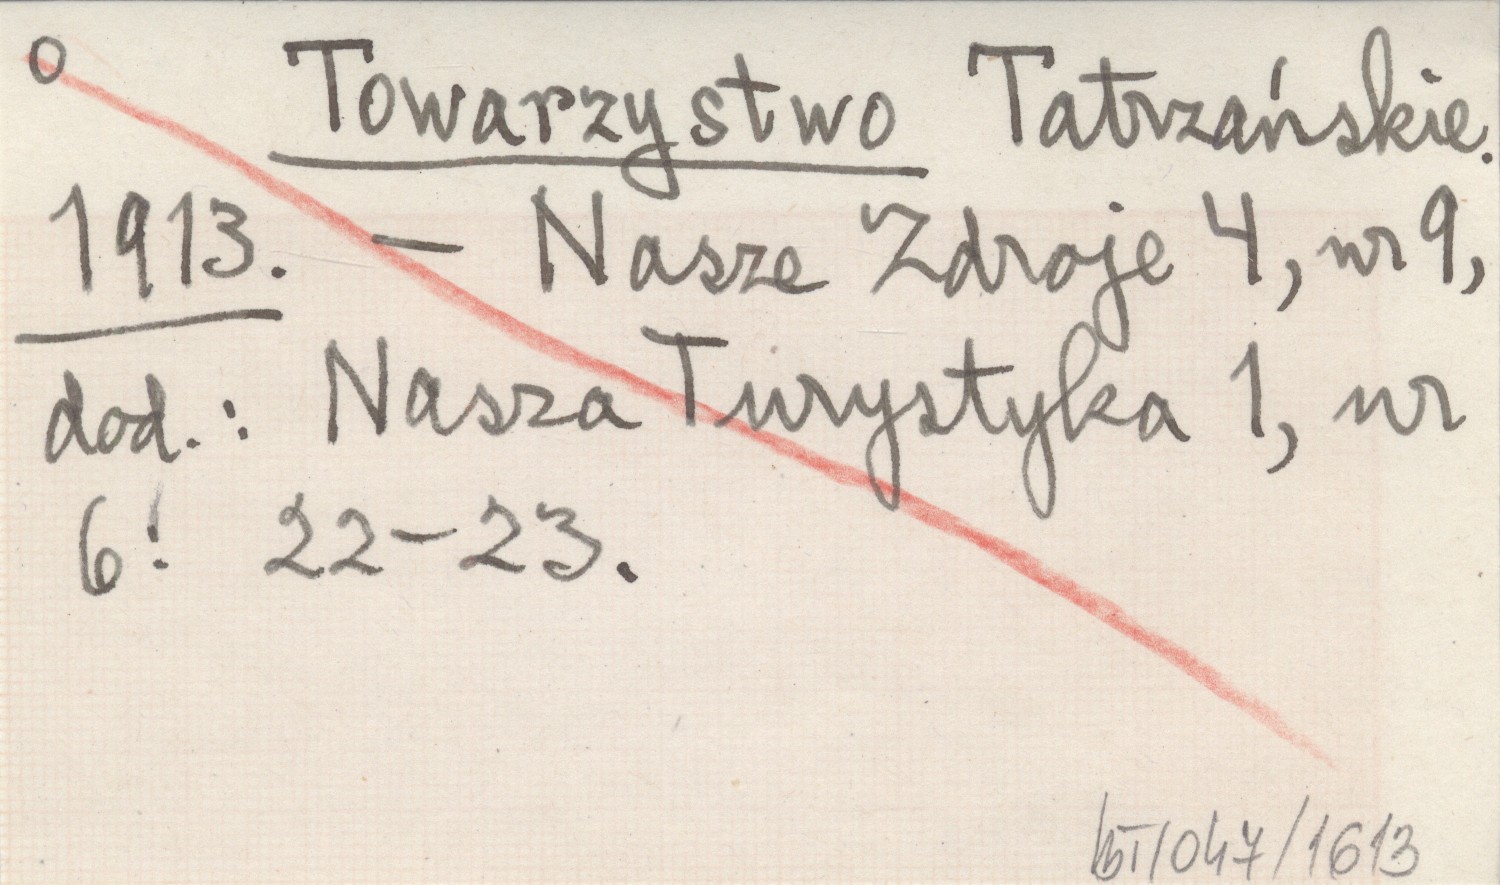 o Towarzystwo Tatrzańskie.
1913. — Nasze Zdroje 4, nr 9,
dod.: Nasza Turystyka 1, nr
6! 22-23.
/047/1613